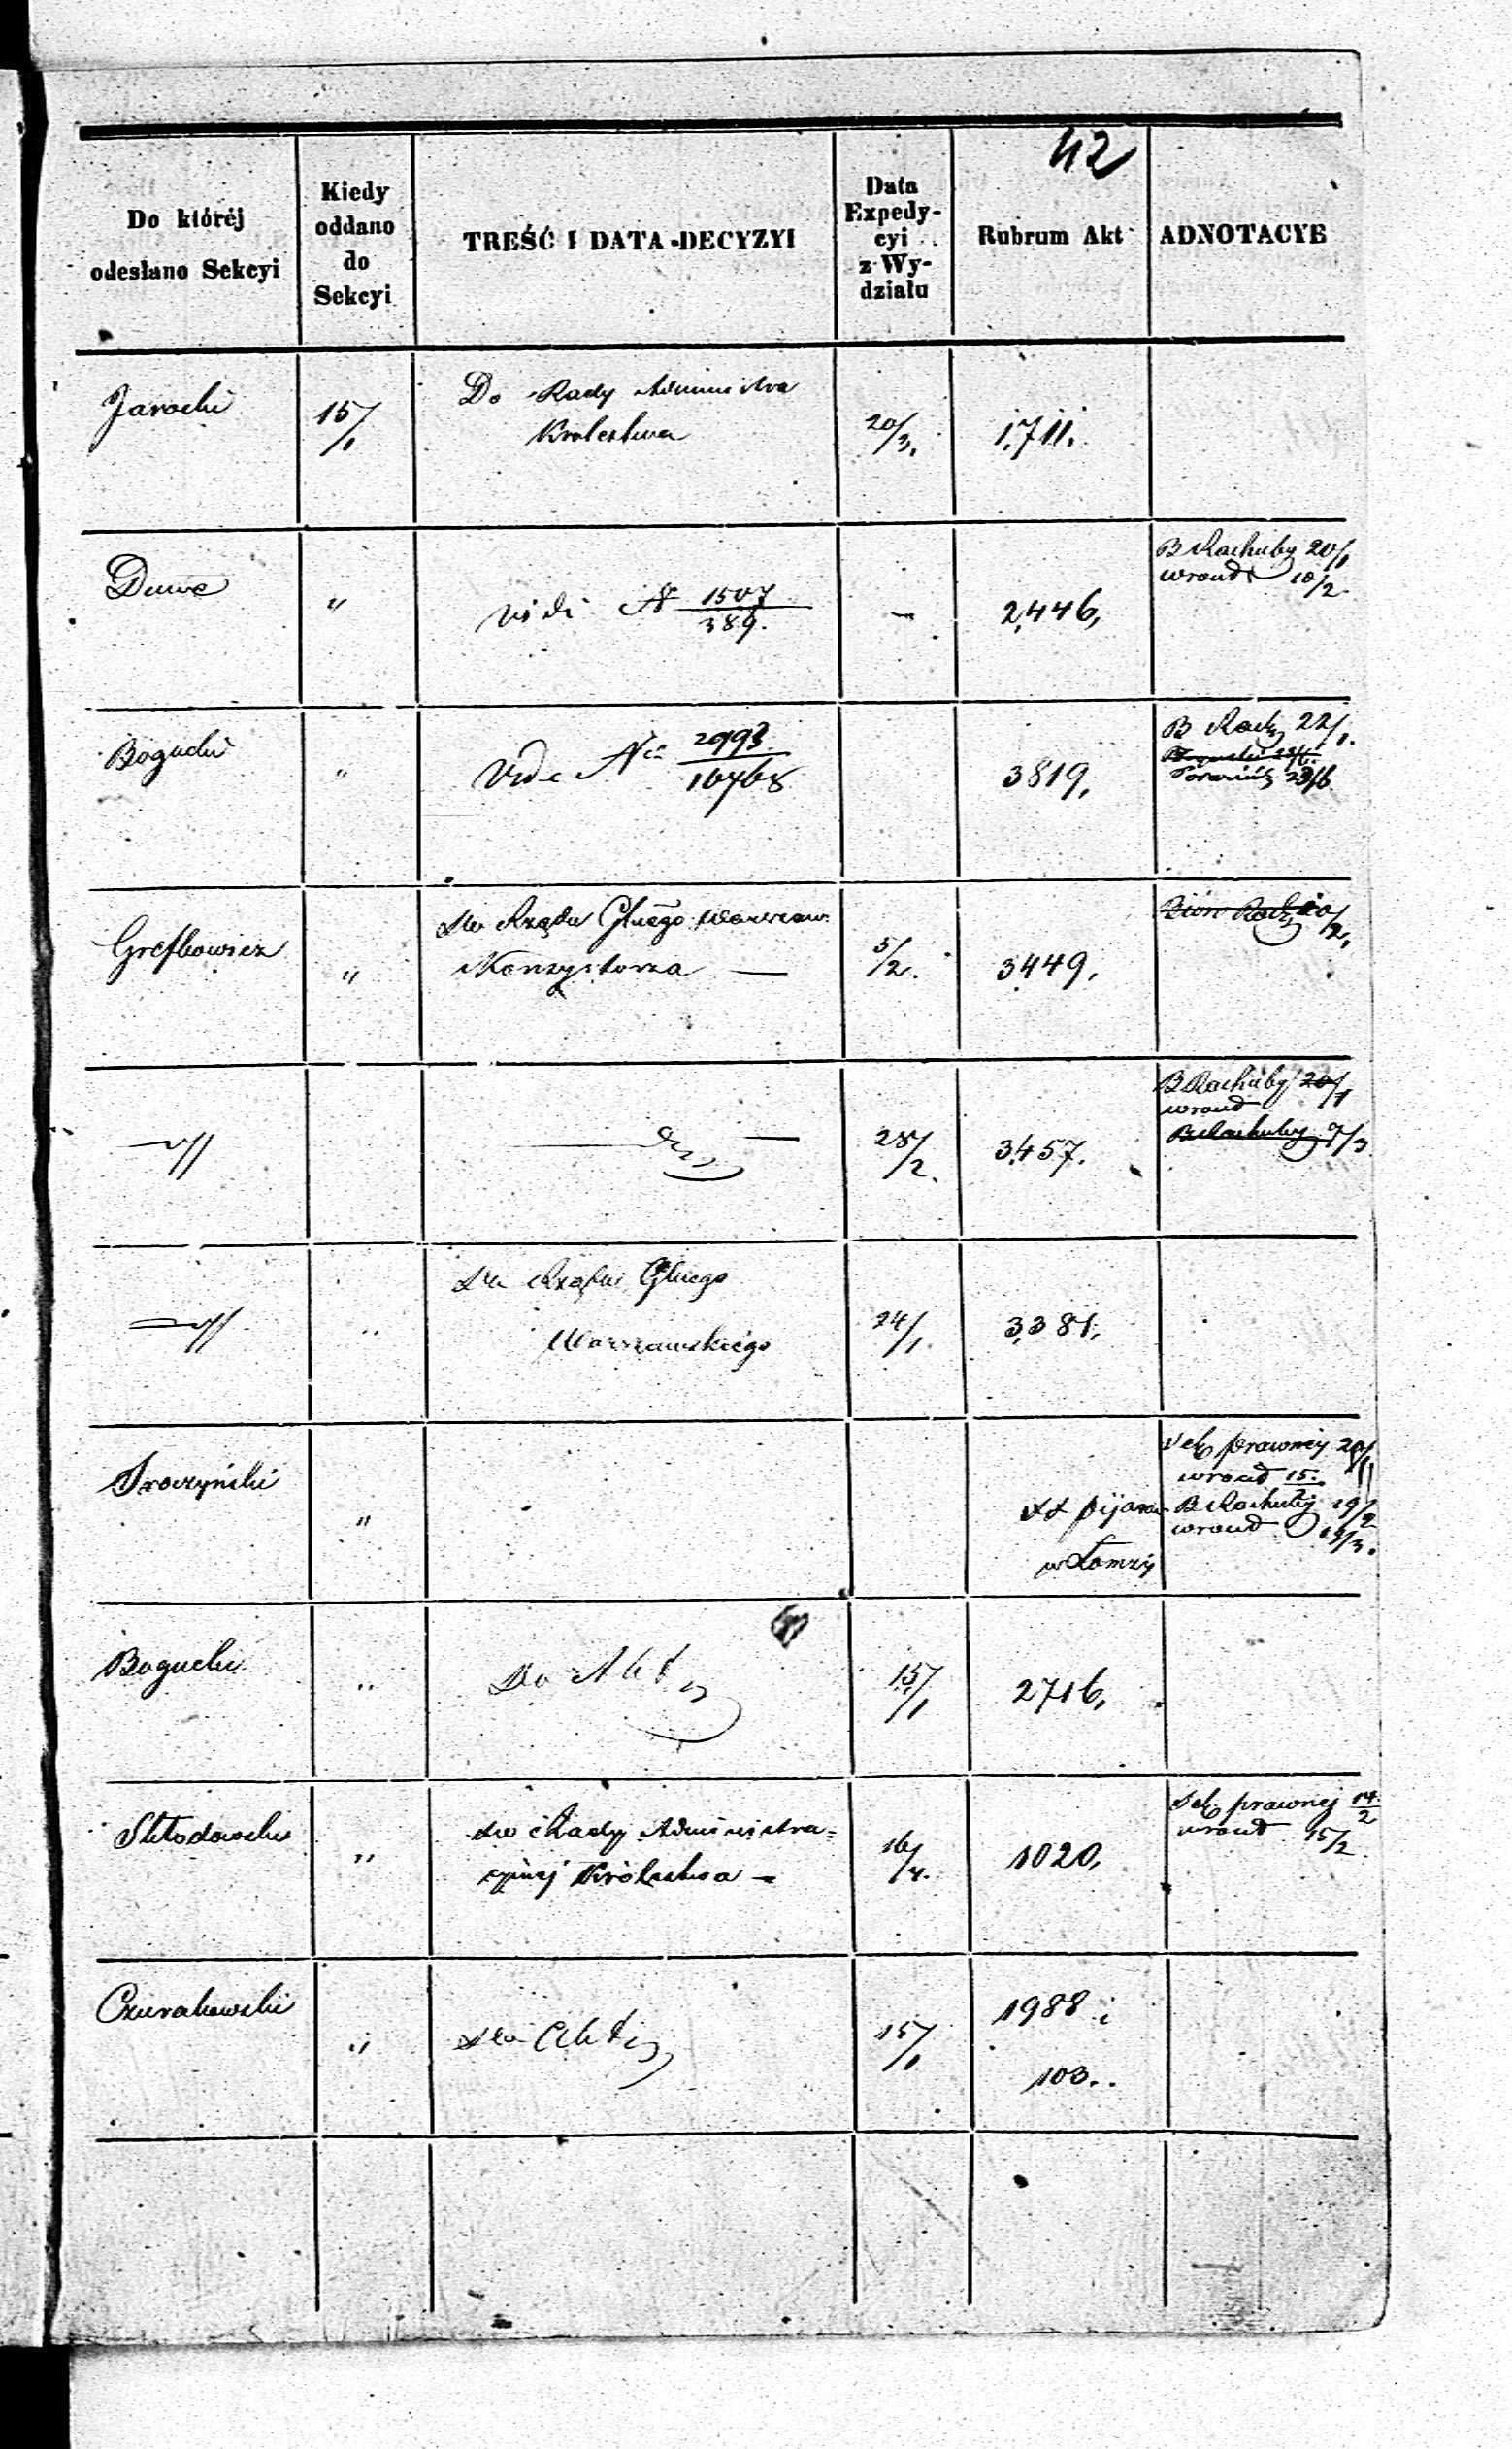 42
Do któréj
odesłano Sekcyi
Kiedy
oddano
do
Sekcyi
TREŚĆ I DATA DECYZYI
Data
Expedy-
cyi
z Wy-
działu
Rubrum Akt
ADNOTACYE
Jarocki
15/1
Do Rady Administra
Krolestwa
20/3.
1,711.
Duwe
"
vidi N 1507/389.
-
2,446,
B Rachuby 20/1
10/2.
Bogucki
"
Vide No 2993/10768
3819,
B Rach 22/1.
23/6
"
Do Rządu Glnego Warszaw.
Konsystorza —
5/2.
3449,
20/2,
28/2.
3,457.
B Rachuby 20/1
wraud
B Rachuby 7/3
"
Do Rządu Glnego
Warszawskiego
24/1.
3,381,
"
XX Pijarow
w Łomży
Sek prawnej 20/1
wraud 15/2
B Rachuby 19/2
wraud 13/3.
Bogucki
"
Do Akt
15/1
2716,
Skłodowski
"
Do Rady Administra=
cyjnej Królestwa —
16/4.
1020,
Sek prawnej 14/2
wraud 15/2
Czurakowski
"
Do Akt
15/1
1988 i
103.